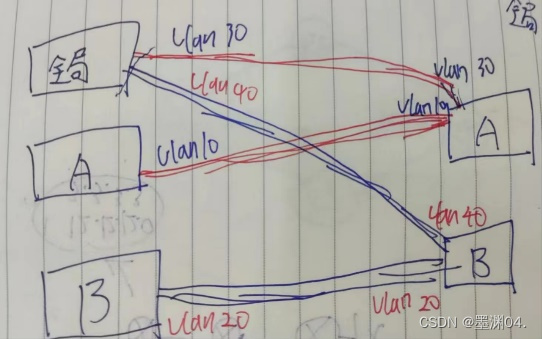 全局
vlan 30
全局
vlan 30
vlan 40
vlan 10
A
A
vlan 10
vlan 40
B
B
vlan 20
vlan 20
CSDN @墨渊04.